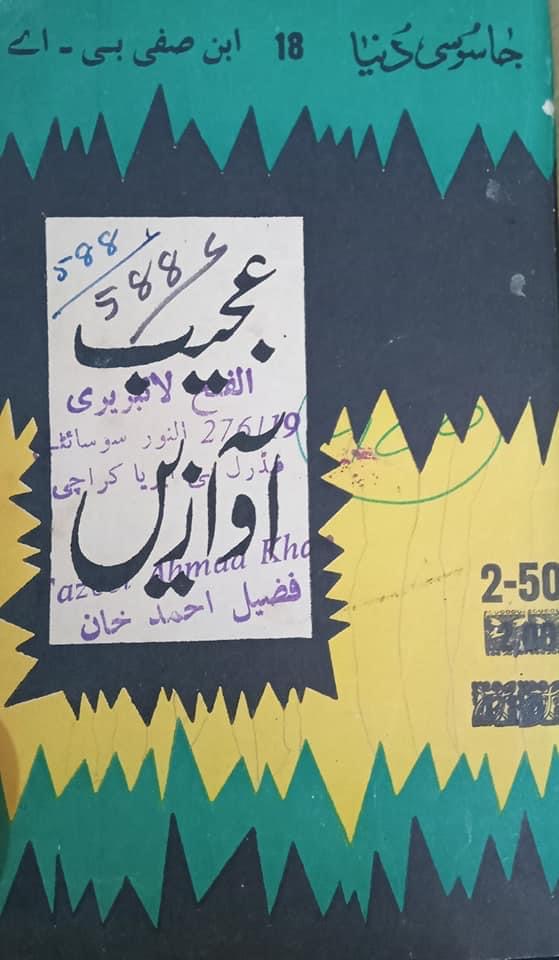 جاسوسی دُنیا 18 ابن صفی بی ۔ اے
588
588
عجیب
الفتح لائبریری
276/19 النور سوسائٹی
فیڈرل بی ایریا کراچی
آوازیں
Fazeel Ahmad Khan
فضیل احمد خان
2-50